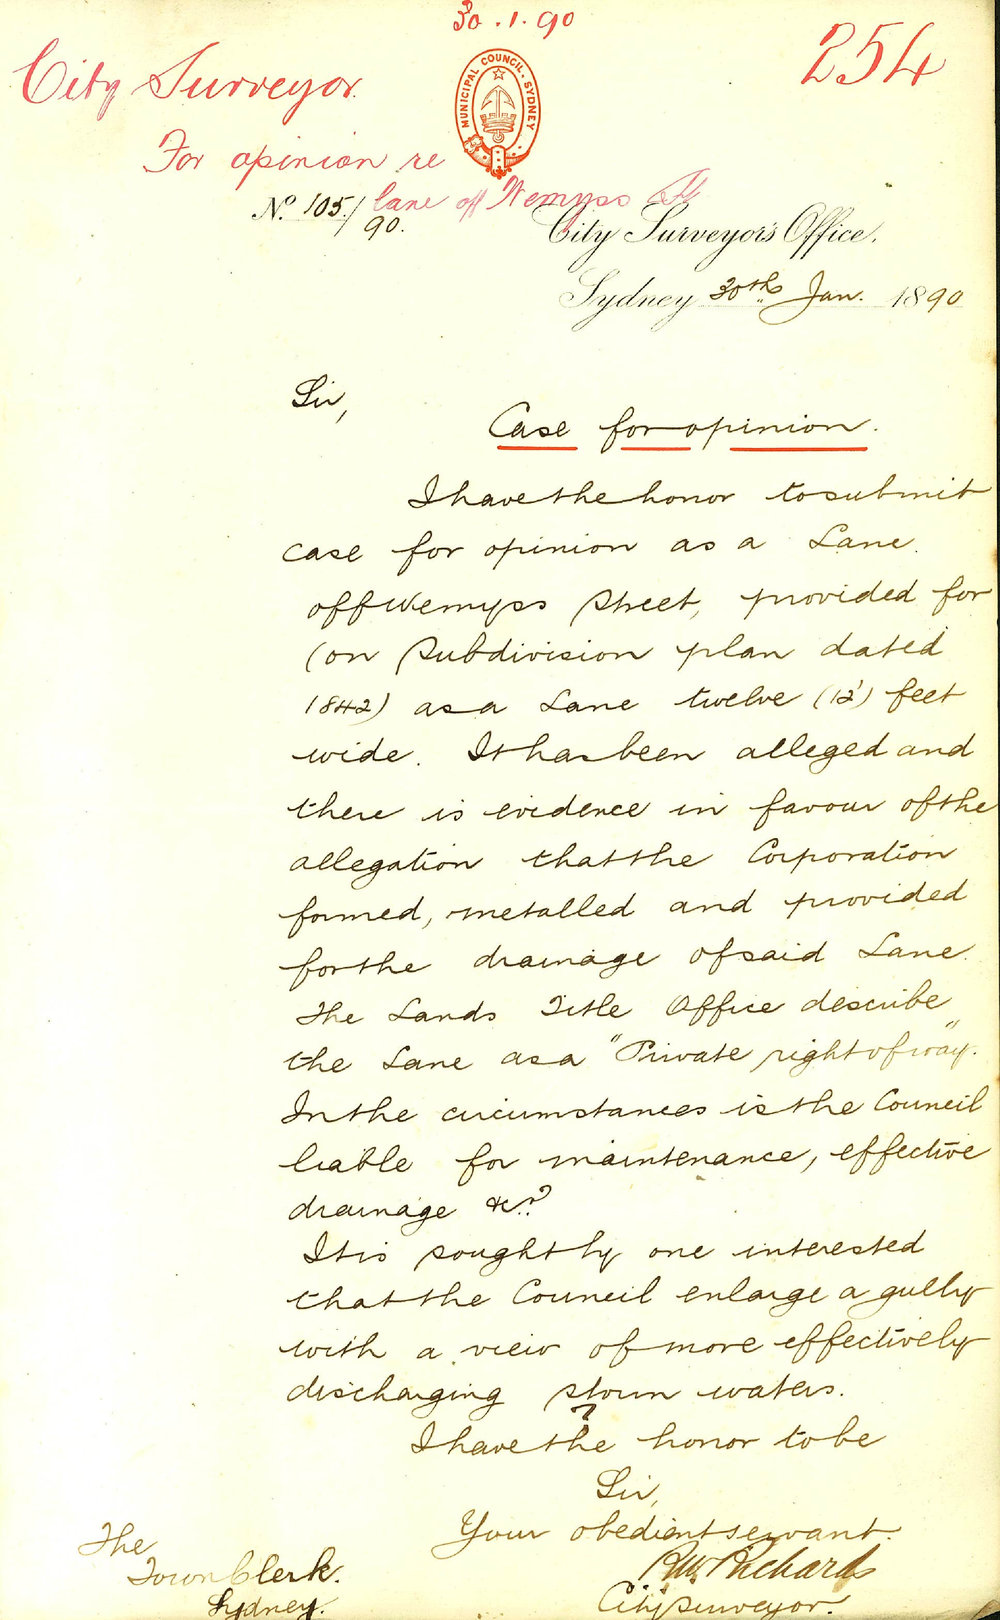 30.1.90
254
City Surveyor.
MUNICIPAL COUNCIL. SYDNEY
For opinion re
lane off Wemyss St
No. 105/90.
City Surveyor's Office.
Sydney 30th Jan. 1890
Sir,
Case for opinion.
I have the honor to submit
case for opinion as a Lane
off Wemyss Street, provided for
(on subdivision plan dated
1842) as a Lane twelve (12') feet
wide. It has been alleged and
there is evidence in favour of the
allegation that the Corporation
formed, metalled and provided
for the drainage of said Lane.
The Lands Title Office describe
the Lane as a "Private right of way".
In the circumstances is the Council
liable for maintenance, effective
drainage &c?
It is sought by one interested
that the Council enlarge a gully
with a view of more effectively
discharging storm waters.
I have the honor to be
Sir,
Your obedient servant.
RW Richards
City Surveyor.
The
Town Clerk.
Sydney.